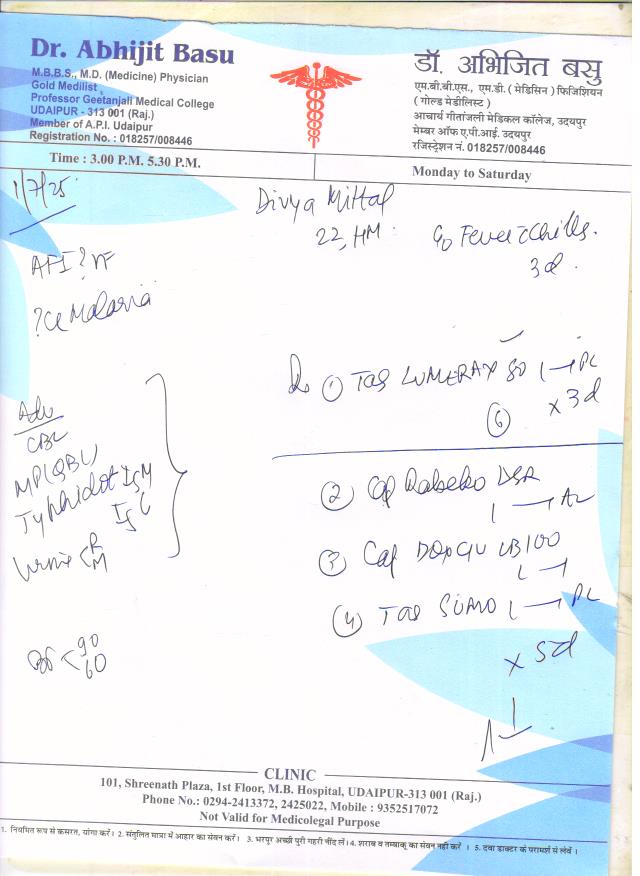 Dr. Abhijit Basu
M.B.B.S., M.D. (Medicine) Physician
Gold Medilist
Professor Geetanjali Medical College
UDAIPUR - 313 001 (Raj.)
Member of A.P.I. Udaipur
Registration No. : 018257/008446
डॉ. अभिजित बसु
एम.बी.बी.एस., एम.डी. (मेडिसिन) फिजिशियन
(गोल्ड मेडीलिस्ट)
आचार्य गीतांजली मेडिकल कॉलेज, उदयपुर
मेम्बर ऑफ ए.पी.आई. उदयपुर
रजिस्ट्रेशन नं. 018257/008446
Time : 3.00 P.M. 5.30 P.M.
Monday to Saturday
1/7/25
Divya Mittal
22,
c/o Fever c Chills.
3d.
AFI ?
? Malaria
Adv
CBC
MP(QBC)
Typhidot IgM
IgG
Urine < R
M
90
60
Rx ① Tab LUMERAX 80 1 → PC
x 3d
⑥
② Cap Rabeko DSR
1 →
③ Cap LB 100
1 →
④ Tab SUMO 1 → PC
x 5d
CLINIC
101, Shreenath Plaza, 1st Floor, M.B. Hospital, UDAIPUR-313 001 (Raj.)
Phone No.: 0294-2413372, 2425022, Mobile : 9352517072
Not Valid for Medicolegal Purpose
1. नियमित रूप से कसरत, योगा करें। 2. संतुलित मात्रा में आहार का सेवन करें। 3. भरपुर अच्छी पुरी गहरी नींद लें। 4. शराब व तम्बाकू का सेवन नही करें । 5. दवा डाक्टर के परामर्श से लेवें ।